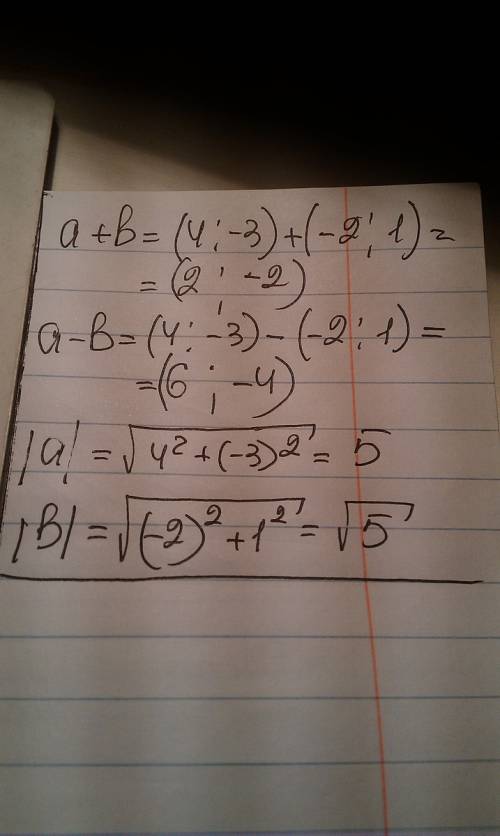 a + b = (4 ; -3) + (-2 ; 1) =
= (2 ; -2)
a - b = (4 ; -3) - (-2 ; 1) =
= (6 ; -4)
|a| = √(4² + (-3)²) = 5
|b| = √((-2)² + 1²) = √5